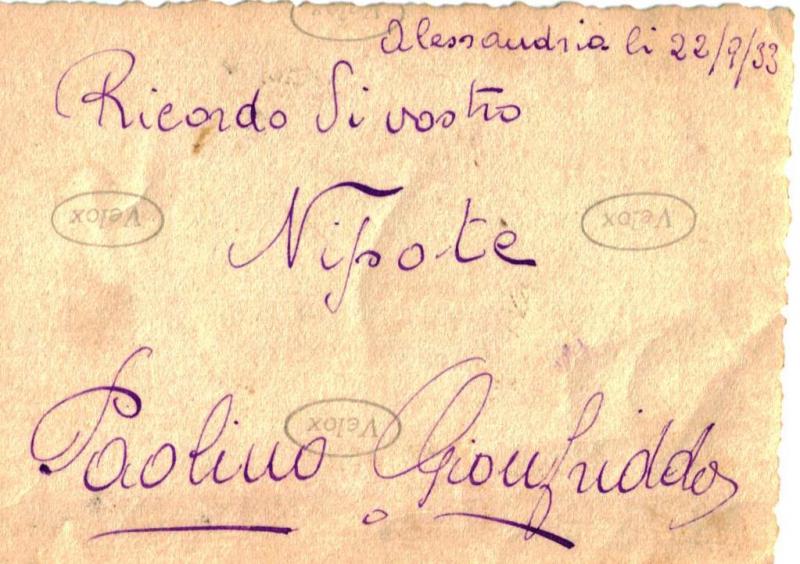 Velox
Alessandria li 22/9/33
Ricordo di vostro
Velox
Velox
Nipote
Velox
Paolino Gionfriddo